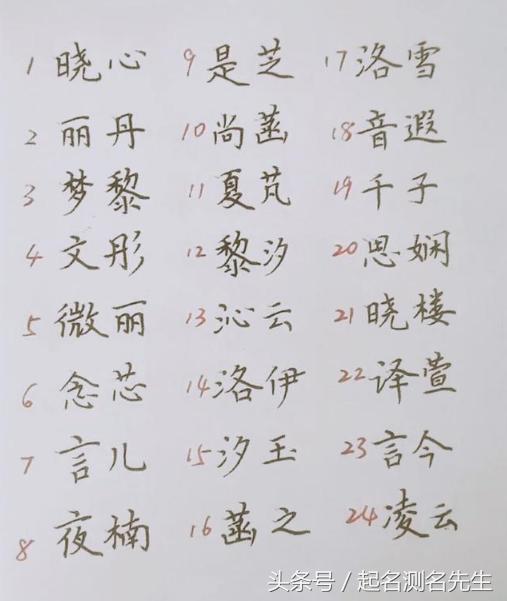 1 晓心 9 是芝 17 洛雪
2 丽丹 10 尚菡 18 音遐
3 梦黎 11 夏芃 19 千子
4 文彤 12 黎汐 20 思娴
5 微丽 13 沁云 21 晓楼
6 念芯 14 洛伊 22 译萱
7 言儿 15 汐玉 23 言今
8 夜楠 16 菡之 24 凌云
头条号 / 起名测名先生